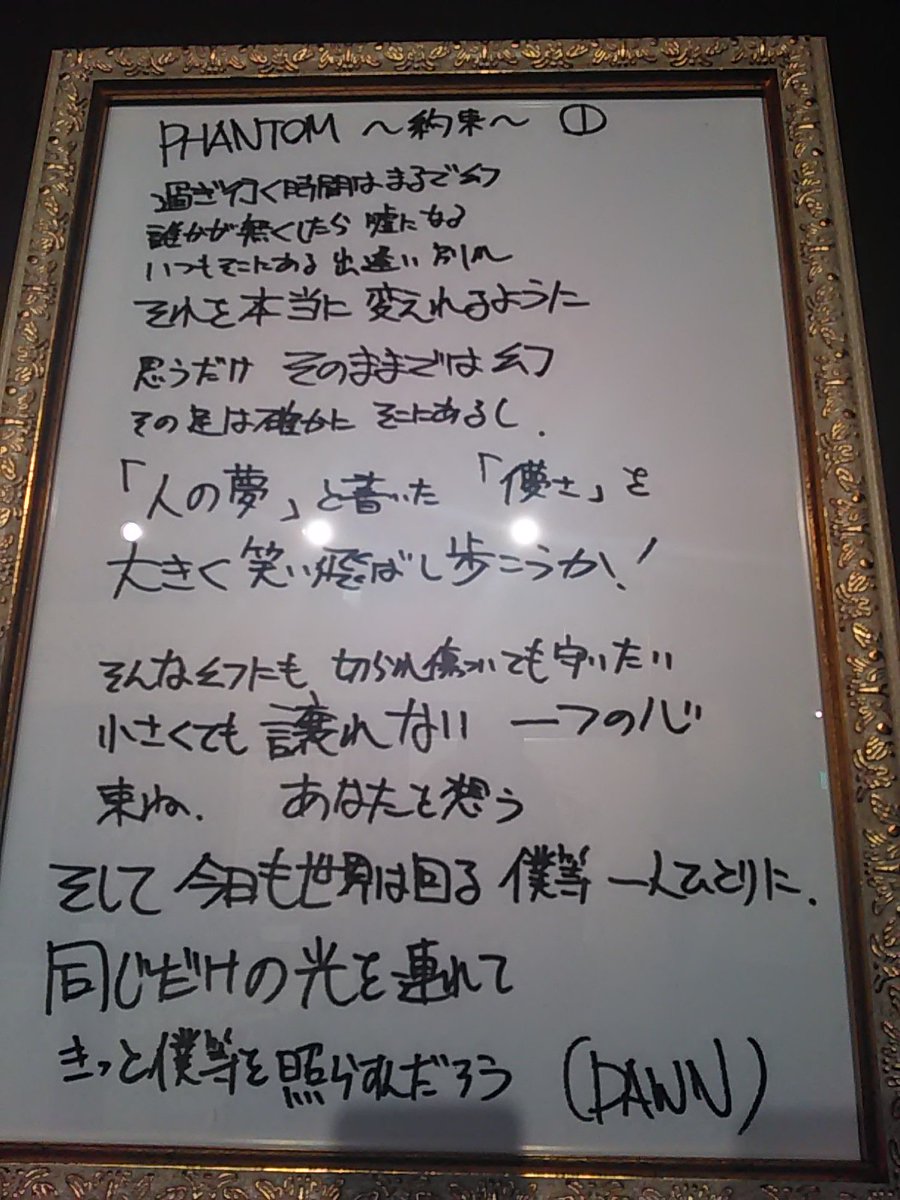 PHANTOM ～約束～ ①
過ぎ行く時間はまるで幻
誰かが無くしたら 嘘になる
いつもそこにある 出逢い 別れ
それを本当に 変えれるように
思うだけ そのままでは幻
その足は確かに そこにあるし.
「人の夢」と書いた 「儚さ」を
大きく笑い飛ばし歩こうか!
そんな幻にも 切られ傷ついても 守りたい
小さくても 譲れない 一つの心
束ね. あなたと想う
そして 今日も世界は回る 僕等 一人ひとりに.
同じだけの光を連れて
きっと僕等を照らすんだろう (DAWN)